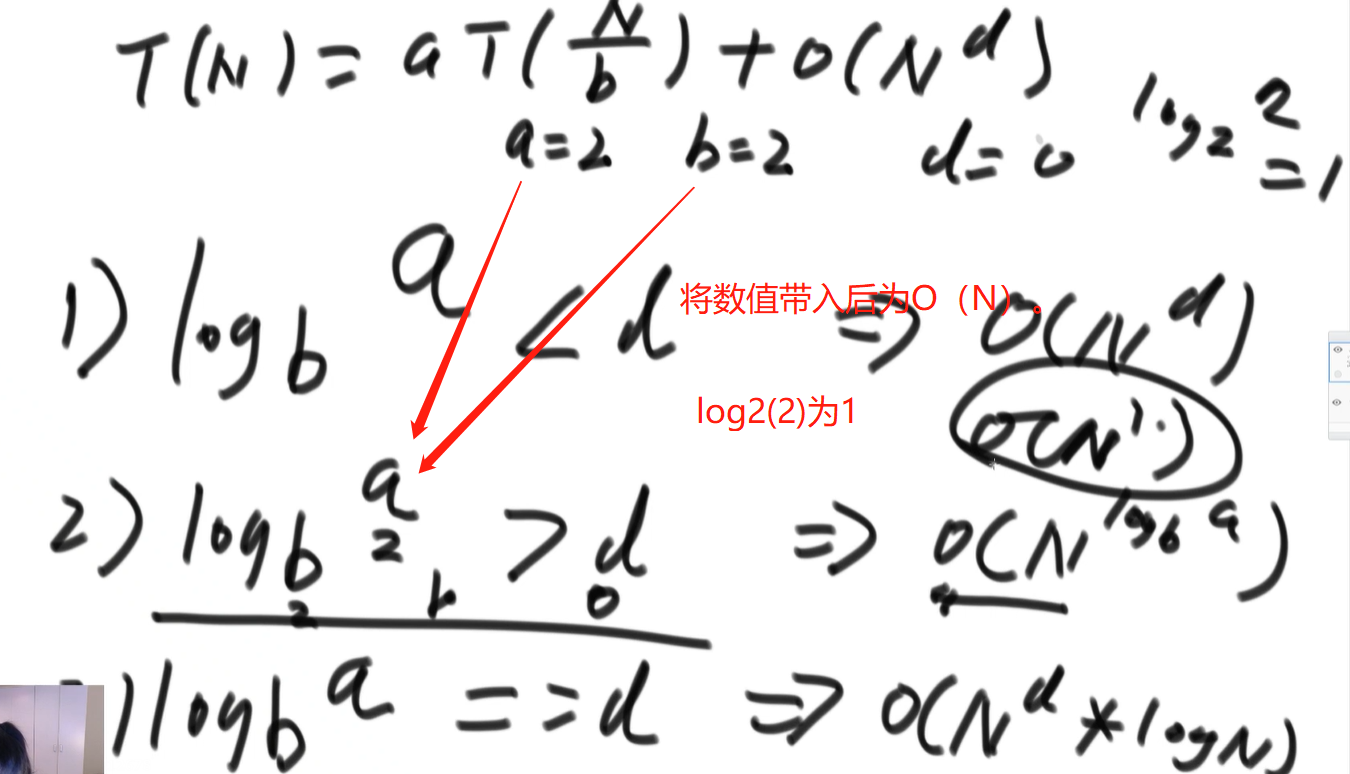 T(N) = aT(N/b) + O(N^d)
a=2 b=2 d=0 log₂2 =1
1) log_b a < d ⇒ O(N^d)
将数值带入后为O（N）。
log2(2)为1
O(N^1)
2) log_b a > d ⇒ O(N^log_b a)
2
2 0
) log_b a == d ⇒ O(N^d * logN)